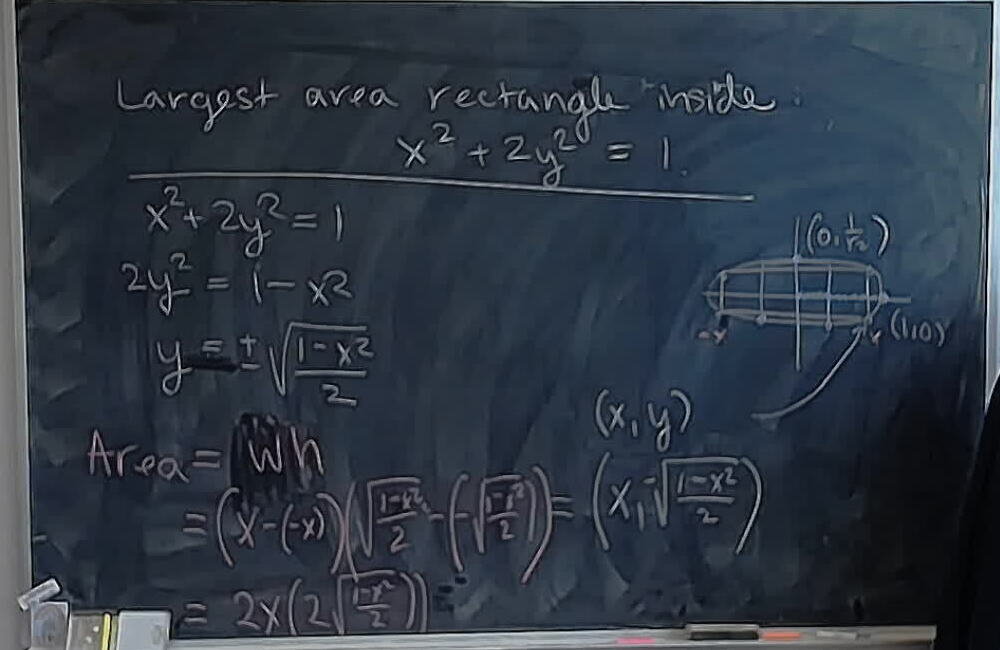 Largest area rectangle inside:
x² + 2y² = 1.
x² + 2y² = 1
2y² = 1 - x²
y = ± √((1-x²)/2)
(0, 1/√2)
-x
x
(1,0)
(x, y)
(x, -√((1-x²)/2))
Area = Wh
= (x-(-x))(√((1-x²)/2) - (-√((1-x²)/2))) =
= 2x(2√((1-x²)/2))